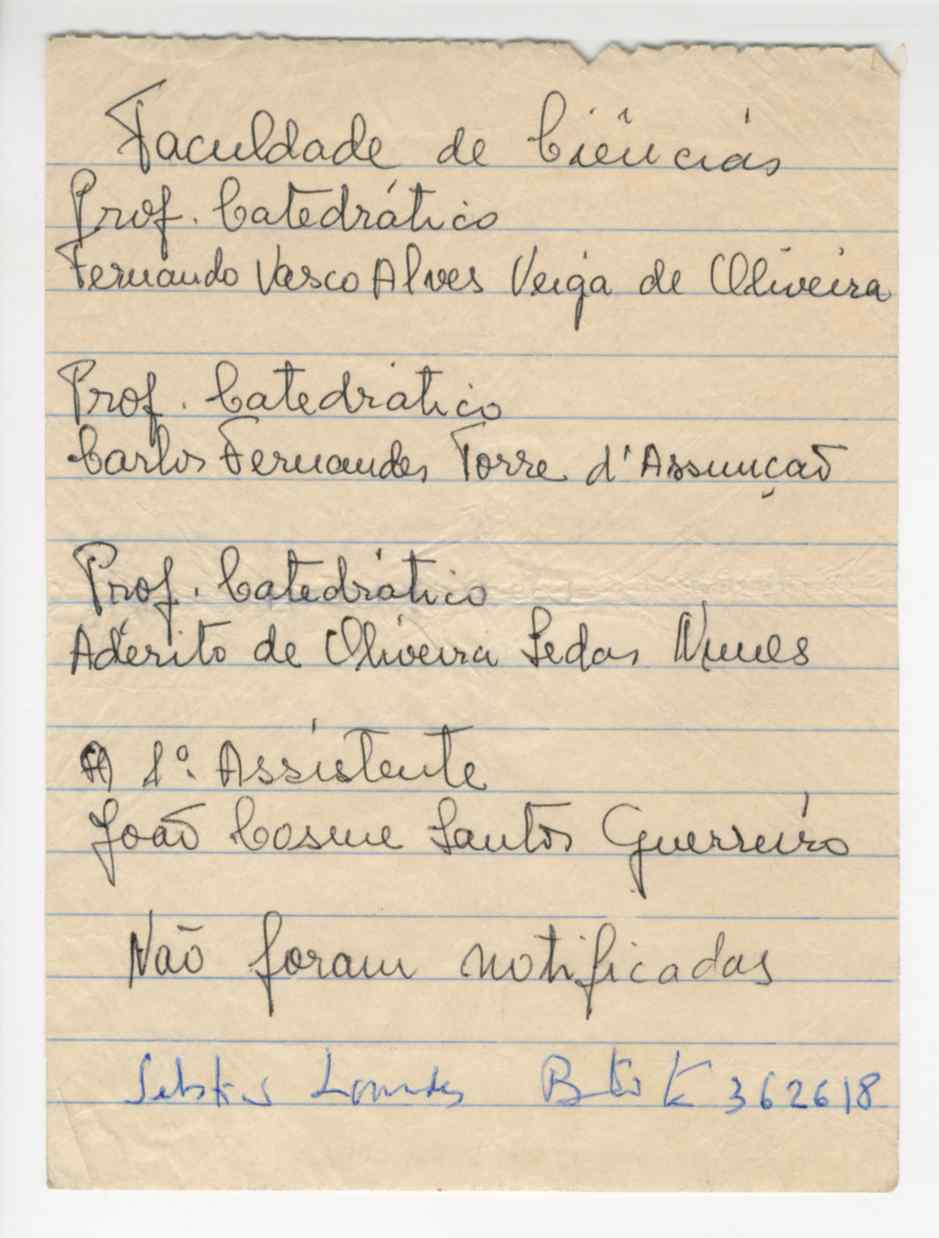 Faculdade de Ciências
Prof. Catedrático
Fernando Vasco Alves Veiga de Oliveira
Prof. Catedrático
Carlos Fernandes Torre d'Assunção
Prof. Catedrático
Adérito de Oliveira Sedas Nunes
1º Assistente
João Cosme Santos Guerreiro
Não foram notificadas
362618